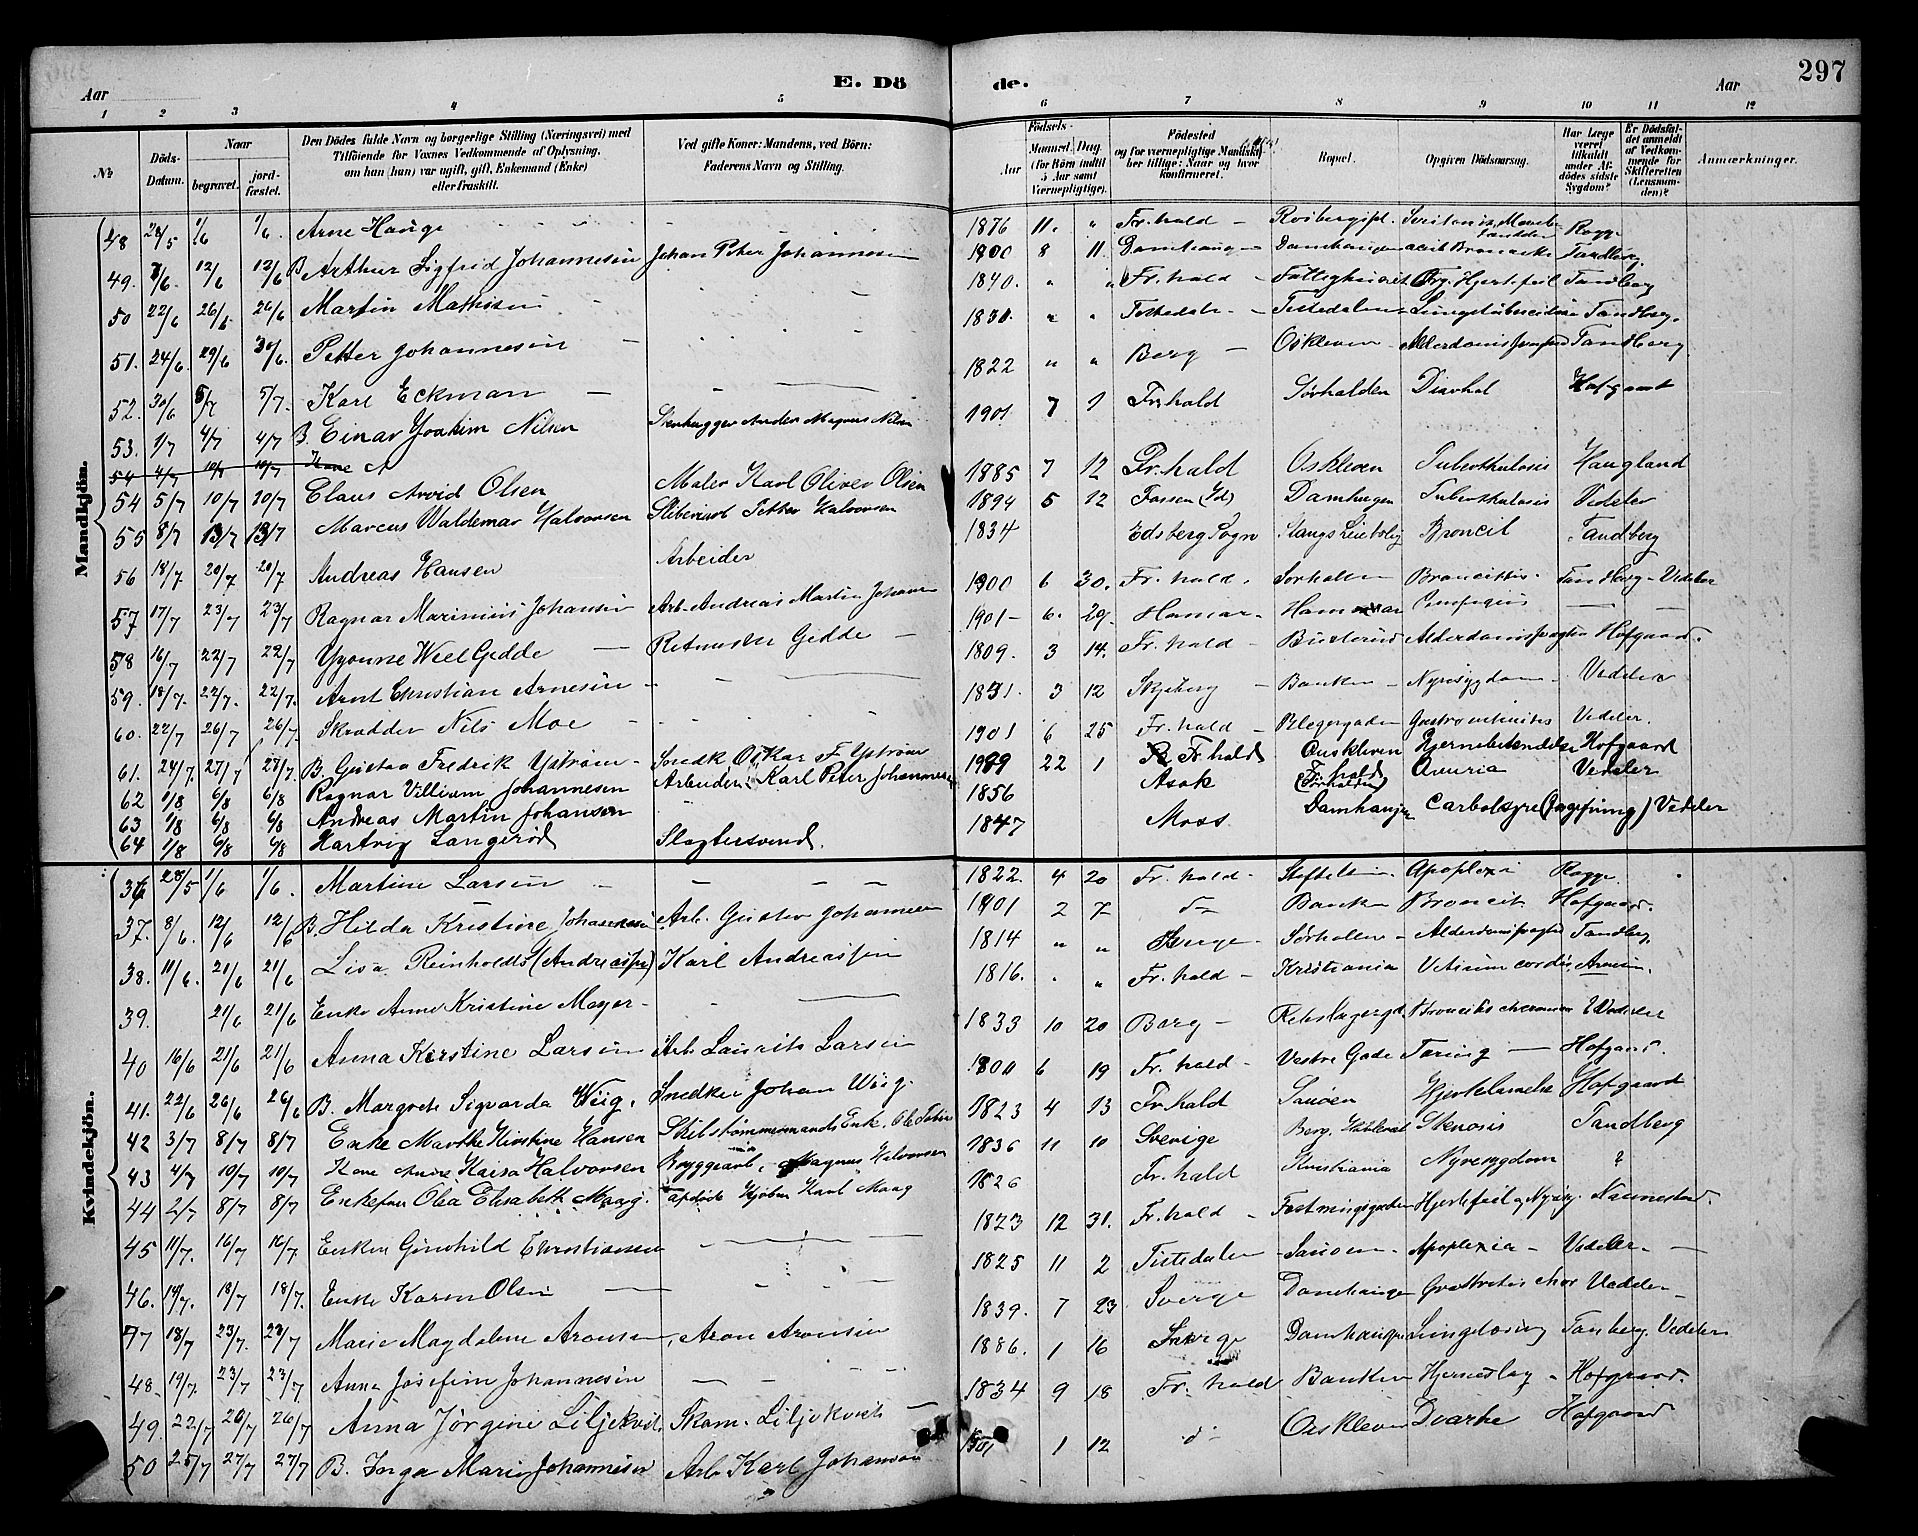 297
Aar E. Dö de. Aar
1 2 3 4 5 6 7 8 9 10 11 12
№ Döds-Datum. Naar begravet. jord-fæstet. Den Dödes fulde Navn og borgerlige Stilling (Næringsvei) med Tilföiende for Voxnes Vedkommende af Oplysning, om han (hun) var ugift, gift, Enkemand (Enke) eller fraskilt. Ved gifte Koner: Mandens, ved Börn: Faderens Navn og Stilling.
Födsels- Aar Maaned. Dag. (for Börn indtil 5 Aar samt Værnepligtige). Födested og for værnepligtige Mandskaber tillige: Naar og hvor konfirmeret. Bopæl. Opgiven Dödsaarsag. Har Læge været tilkaldt under Afdödes sidste Sygdom? Er Dödsfaldet anmeldt af Vedkommende for Skifteretten (Lensmanden)? Anmærkninger.
Mandkjön.
48 28/5 1/6 1/6. Arne Hauge
49. 7/6. 12/6 12/6 B Arthur Sigfrid Johannesen Johan Peter Johannesen
50 22/6 26/6 26/6 Martin Mathisen
51. 24/6. 29/6 30/6. Petter Johannesen
52. 30/6 5/7 5/7. Karl Eckman
53. 1/7 4/7 4/7 B. Einar Joakim Nilsen Stenhugger Anders Magnus Nilsen
54 4/7 10/7 10/7 Kone A
54 5/7 10/7 10/7 Claus Arvid Olsen Maler Karl Oliver Olsen
55 8/7 13/7 13/7 Marcus Waldemar Halvorsen Petter Halvorsen
56 18/7 20/7 20/7 Andreas Hansen Arbeider
57 17/7 23/7 23/7 Ragnar Marinius Johansen Arb. Andreas Martin Johansen
58 16/7 22/7 22/7 Yvonne Weel Gedde Ritmester Gedde
59. 18/7. 22/7. 22/7. Arnt Christian Arnesen
60. 22/7 26/7 26/7. Skrædder Nils Moe
61. 24/7. 27/7 27/7. B. Gustav Fredrik Ystrøm Snedk Oskar F. Ystrøm
62 1/8 6/8 6/8 Ragnar Villiam Johannesen Arbeider Karl Peter Johannesen
63 1/8 6/8 6/8 Andreas Martin Johansen
64 1/8 6/8 6/8 Hartvig Langerød Slagtersvend.
1876 11. " Fr.hald Rødsbergspl. Rogge
1900 8 11 Damhaug Damhaugen acut Bronchitis Tandberg.
1840. " " Fr. hald Fattighuset Org. Hjertefeil Tandberg
1830. " " Tistedalen Tistedalen Lungetuberculose Tandberg.
1822 " " Berg Oskleven Alderdomssvaghed Tandberg
1901. 7 1 Fr.hald Sørhalden Diarhe Hofgaard
1885 7 12 Fr.hald Oskleven Tuberkulosis Haugland
1894 5 12 Fossen (Id) Damhaugen Tuberkulosis Vedeler
1834 Edsberg Sogn Stangs Leiebolig Broncit Tandberg
1900 6 30. Fr. hald. Sørhalden Broncittis. Tandberg - Vedeler
1901 6. 29. Hamar. Hamar
1809. 3 14. Fr. hald Busterud Alderdomssvaghed Hofgaard.
1831. 3 12 Skjeberg Banken Nyresygdom Vedeler
1901 6 25 Fr.hald Blegergaden Gastroenteritis Vedeler.
1989 22 1 Fr.hald Ouskleven Hjernebetændelse Hofgaard
1856 Asak Fr.hald (Sørhalden) Anuria Vedeler
1847 Moss Damhaugen Carbolsyre (forgiftning) Vedeler
Kvindekjön.
36 28/5 1/6 1/6. Martine Larsen
37. 8/6. 12/6 12/6 B. Hilda Kristine Johannesen Arb. Gustav Johannesen
38. 11/6. 21/6 21/6 Lisa Reinholdts (Andreassen) Karl Andreassen
39. 21/6 21/6 Enke Anne Kristine Meyer
40 16/6 21/6 21/6 Anna Kirstine Larsen Arb. Laurits Larsen
41. 22/6 26/6 26/6 B. Margrete Sigvarda Wiig. Snedker Johan Wiig.
42 3/7 8/7 8/7 Enke Marthe Kirstine Hansen Skibstømmermands Enke, Ole
43 4/7 10/7 10/7 Kone Anne Kaisa Halvorsen Bryggearb. Magnus Halvorsen
44 2/7 8/7 8/7 Enkefru Olea Elisabeth Maag. afdøde Kjøbm Karl Maag
45 11/7. 16/7 16/7. Enken Gunhild Christiansen
46. 14/7. 18/7 18/7. Enke Karen Olsen
47 18/7 23/7. 23/7 Marie Magdalene Aronsen, Aron Aronsen
48. 19/7. 23/7 23/7. Anna Josefine Johannesen
49. 22/7 26/7 26/7 Anna Jørgine Liljekvist. Skom. Liljekvist
50 25/7 27/7 27/7 B. Inga Marie Johannesen Arb Karl Johansen
1822. 4 20 Fr. hald. Apoplexi Rogge.
1901 2 7 do Banken Broncit Hofgaard.
1814 " " Sverge Sørhalden Alderdomssvaghed Tandberg.
1816. " " Fr. hald Kristiania Vitium cordis
1833 10 20 Berg Rebslagergd. Vedeler
1800 6 19 Fr. hald. Vestre Gade Tæring Hofgaard.
1823 4 13 Fr.hald Sauøen Hjertelamelse Hofgaard
1836 11 10 Sverige Berg. Stenosis Tandberg
1826 Fr. hald Kristiania Nyresygdom ?
1823 12 31. Fr. hald Fæstningsgaden Hjertefeil og Nyresyg. Nannestad.
1825 11 2 Tistedalen Sauøen Apoplexia Vedeler
1839. 7 23 Sverge Damhaugen Vedeler
1886. 1 16 Sverge Damhaugen Lungetæring Tanberg. Vedeler
1834 9 18 Fr. hald Banken Hjerneslag Hofgaard.
1901 1 12 do Oiskleven Diarhe Hofgaard